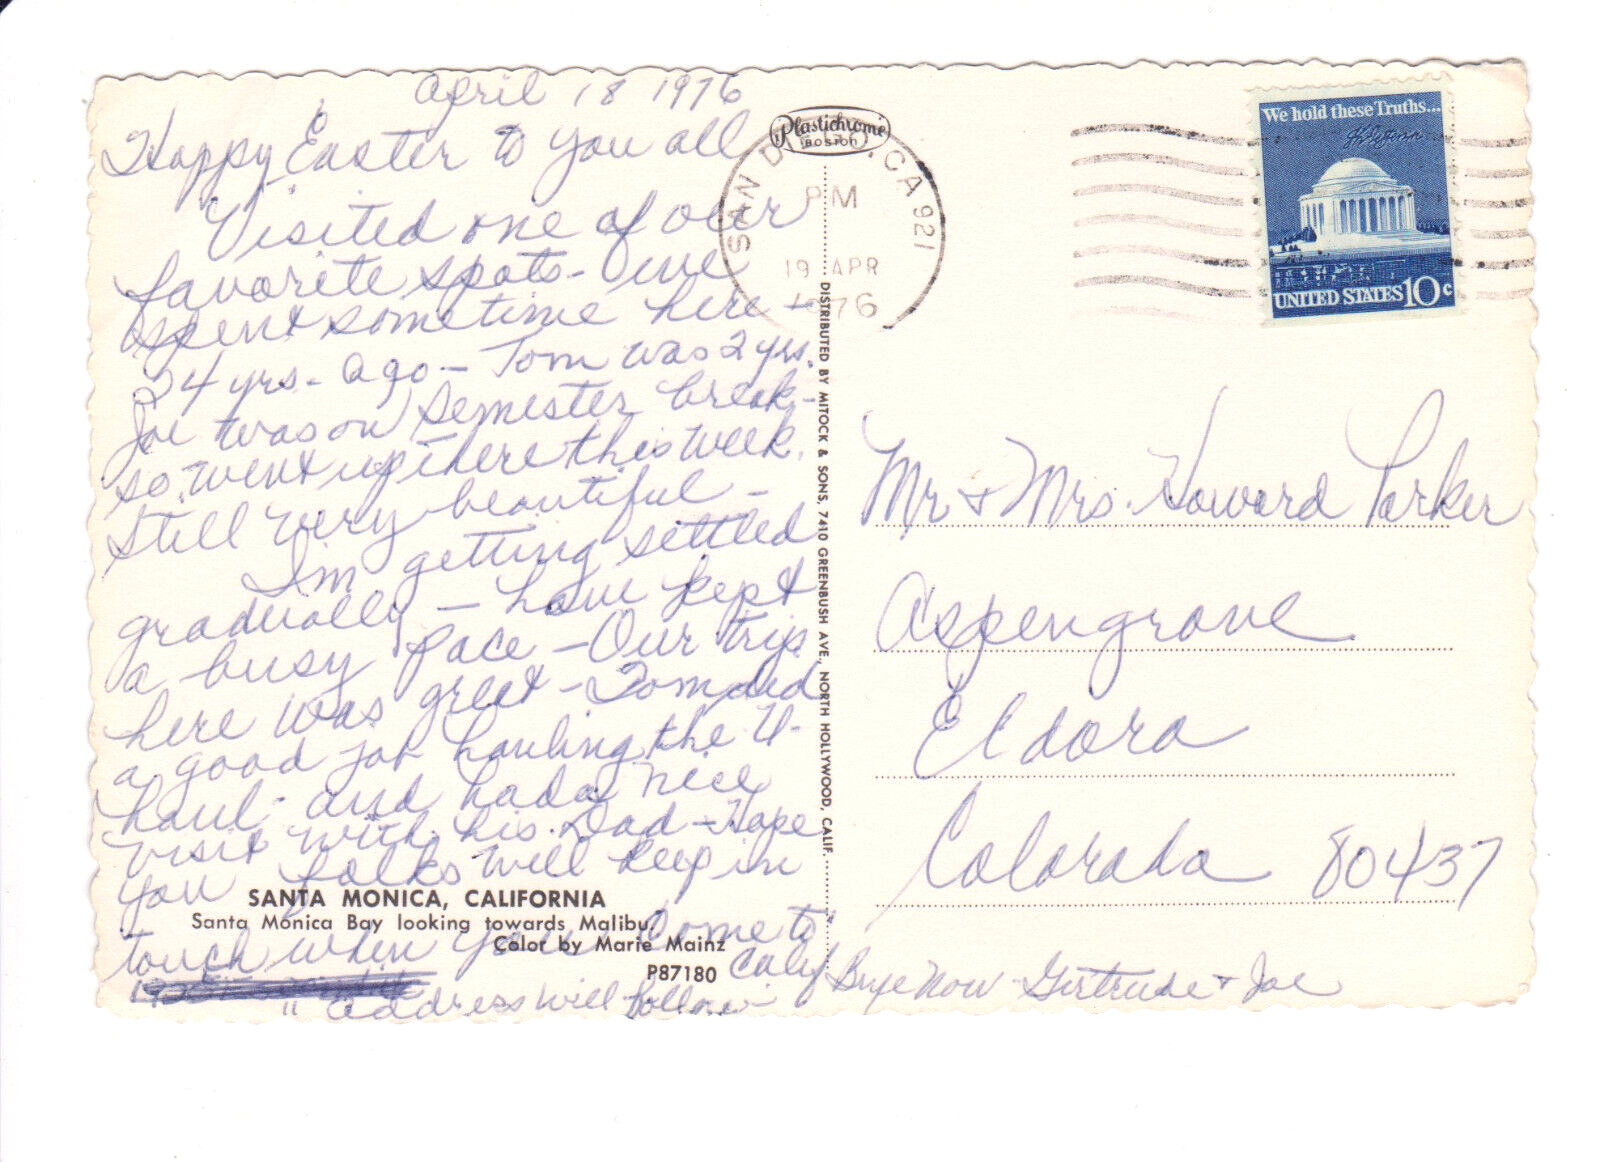 April 18 1976
Happy Easter to you all
Visited one of our
favorite spots - We
spent sometime here -
24 yrs. ago - Tom was 2 yrs.
Joe was on semester break -
so went up there this week.
Still very beautiful -
I'm getting settled
gradually - have kept
a busy pace - Our trip
here was great - Tom did
a good job hauling the U-
haul - and had a nice
visit with his Dad - Hope
you folks will keep in
touch when you come to
Calif
" address will follow -
Bye Now - Gertrude & Joe
SANTA MONICA, CALIFORNIA
Santa Monica Bay looking towards Malibu.
Color by Marie Mainz
P87180
Plastichrome
BOSTON
DISTRIBUTED BY MITOCK & SONS, 7410 GREENBUSH AVE, NORTH HOLLYWOOD, CALIF.
SAN DIEGO, CA 921
PM
19 APR
1976
We hold these Truths...
UNITED STATES 10c
Mr & Mrs. Howard Parker
Aspengrove
Eldora
Colorado 80437